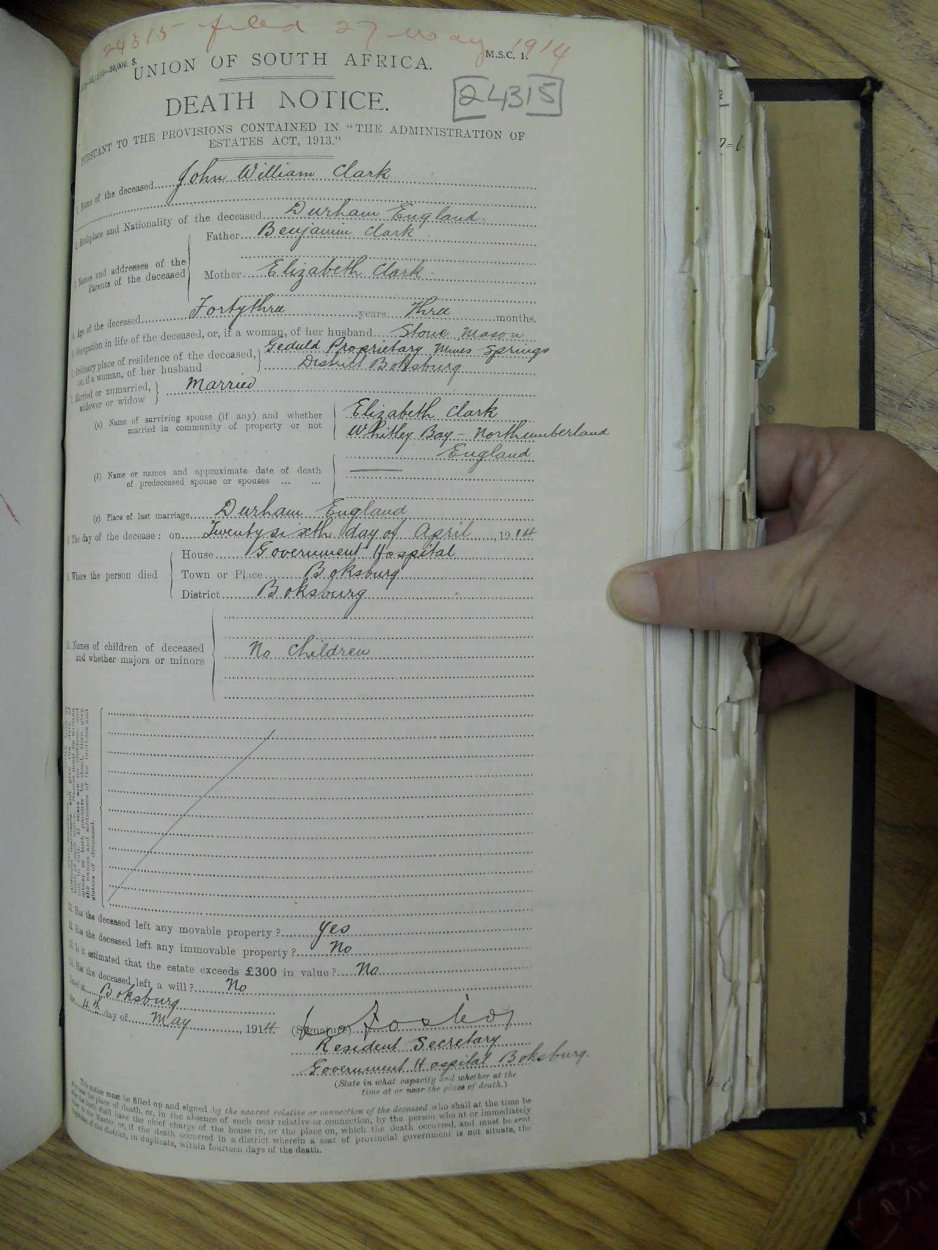 24315 filed 27 May 1914
M.S.C. 1.
UNION OF SOUTH AFRICA.
DEATH NOTICE.
24315
PURSUANT TO THE PROVISIONS CONTAINED IN "THE ADMINISTRATION OF
ESTATES ACT, 1913."
Name of the deceased John William Clark
Birthplace and Nationality of the deceased Durham England
Names and addresses of the Parents of the deceased
Father Benjamin Clark
Mother Elizabeth Clark
Age of the deceased Fortythree years Three months.
Occupation in life of the deceased, or, if a woman, of her husband Stone Mason
Ordinary place of residence of the deceased, Geduld Proprietary Mines Springs
or, if a woman, of her husband District Boksburg
Married or unmarried, widower or widow Married
(a) Name of surviving spouse (if any) and whether married in community of property or not
Elizabeth Clark
Whitley Bay - Northumberland
England
(b) Name or names and approximate date of death
of predeceased spouse or spouses ... ...
(c) Place of last marriage Durham England
The day of the decease: on Twenty sixth day of April 1914
Where the person died
House Government Hospital
Town or Place Boksburg
District Boksburg
10. Names of children of deceased
and whether majors or minors
No Children
Has the deceased left any movable property? Yes
Has the deceased left any immovable property? No
Is it estimated that the estate exceeds £300 in value? No
Has the deceased left a will? No
Dated at Boksburg
the 4th day of May, 1914
(Signature)
Resident Secretary
Government Hospital Boksburg.
(State in what capacity and whether at the
time at or near the place of death.)
This notice must be filled up and signed by the nearest relative or connection of the deceased who shall at the time be
at or near the place of death, or, in the absence of such near relative or connection, by the person who at or immediately
after the death shall have the chief charge of the house in, or the place on, which the death occurred, and must be sent
to the Master, or, if the death occurred in a district wherein a seat of provincial government is not situate, the
of the district, in duplicate, within fourteen days of the death.